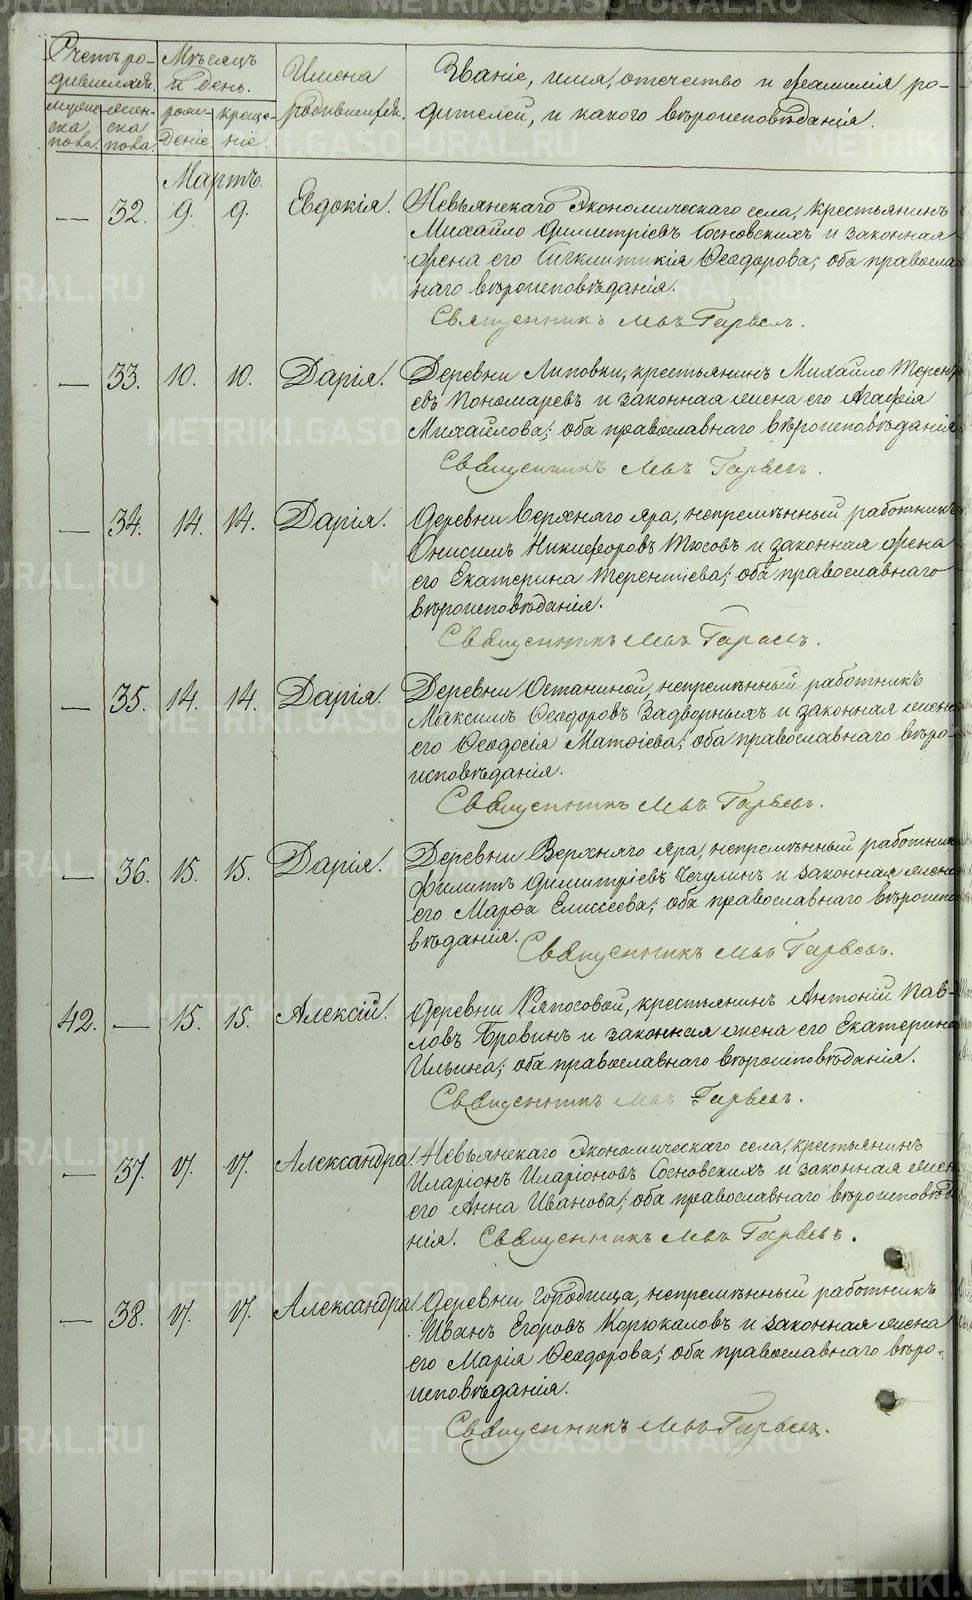 Счетъ ро-
дившихся.
Мѣсяцъ
и день.
Имена
родившихся.
Званіе, имя, отечество и фамилія ро-
дителей, и какого вѣроисповѣданія.
муже-
ска
пола.
жен-
ска
пола.
рож-
деніе
креще-
ніе.
Мартъ.
— 32. 9. 9. Евдокія. Невьянскаго Экономическаго села, крестьянинъ
Михайло Димитріевъ Сосновскихъ и законная
жена его Синклитикія Ѳеодорова; оба правосла-
наго вѣроисповѣданія.
Священникъ Левъ Гаряевъ.
— 33. 10. 10. Дарія. Деревни Липовки, крестьянинъ Михайло Терент
евъ Пономаревъ и законная жена его Агафія
Михайлова; оба православнаго вѣроисповѣданія.
Священникъ Левъ Гаряевъ.
— 34. 14. 14. Дарія. Деревни Верхняго яра, непремѣнный работникъ
Онисимъ Никифоровъ Тюсовъ и законная жена
его Екатерина Терентіева; оба православнаго
вѣроисповѣданія.
Священникъ Левъ Гаряевъ.
— 35. 14. 14. Дарія. Деревни Останиной, непремѣнный работникъ
Максимъ Ѳеодоровъ Задворныхъ и законная жена
его Ѳеодосія Матѳіева; оба православнаго вѣро-
исповѣданія.
Священникъ Левъ Гаряевъ.
— 36. 15. 15. Дарія. Деревни Верхняго яра, непремѣнный работник
Филиппъ Димитріевъ Чечулинъ и законная жена
его Марѳа Елисеева; оба православнаго вѣроиспо
вѣданія. Священникъ Левъ Гаряевъ.
42. — 15. 15. Алексій. Деревни Ряпосовой, крестьянинъ Антоній Пав-
ловъ Бровинъ и законная жена его Екатерина
Ильина; оба православнаго вѣроисповѣданія.
Священникъ Левъ Гаряевъ.
— 37. 17. 17. Александра. Невьянскаго Экономическаго села, крестьянинъ
Иларіонъ Иларіоновъ Сосновскихъ и законная жен
его Анна Иванова; оба православнаго вѣроисповѣда
нія. Священникъ Левъ Гаряевъ.
— 38. 17. 17. Александра. Деревни Городища, непремѣнный работникъ
Иванъ Егоровъ Корюкаловъ и законная жена
его Марія Ѳеодорова; оба православнаго вѣро-
исповѣданія.
Священникъ Левъ Гаряевъ.
METRIKI.GASO-URAL.RU